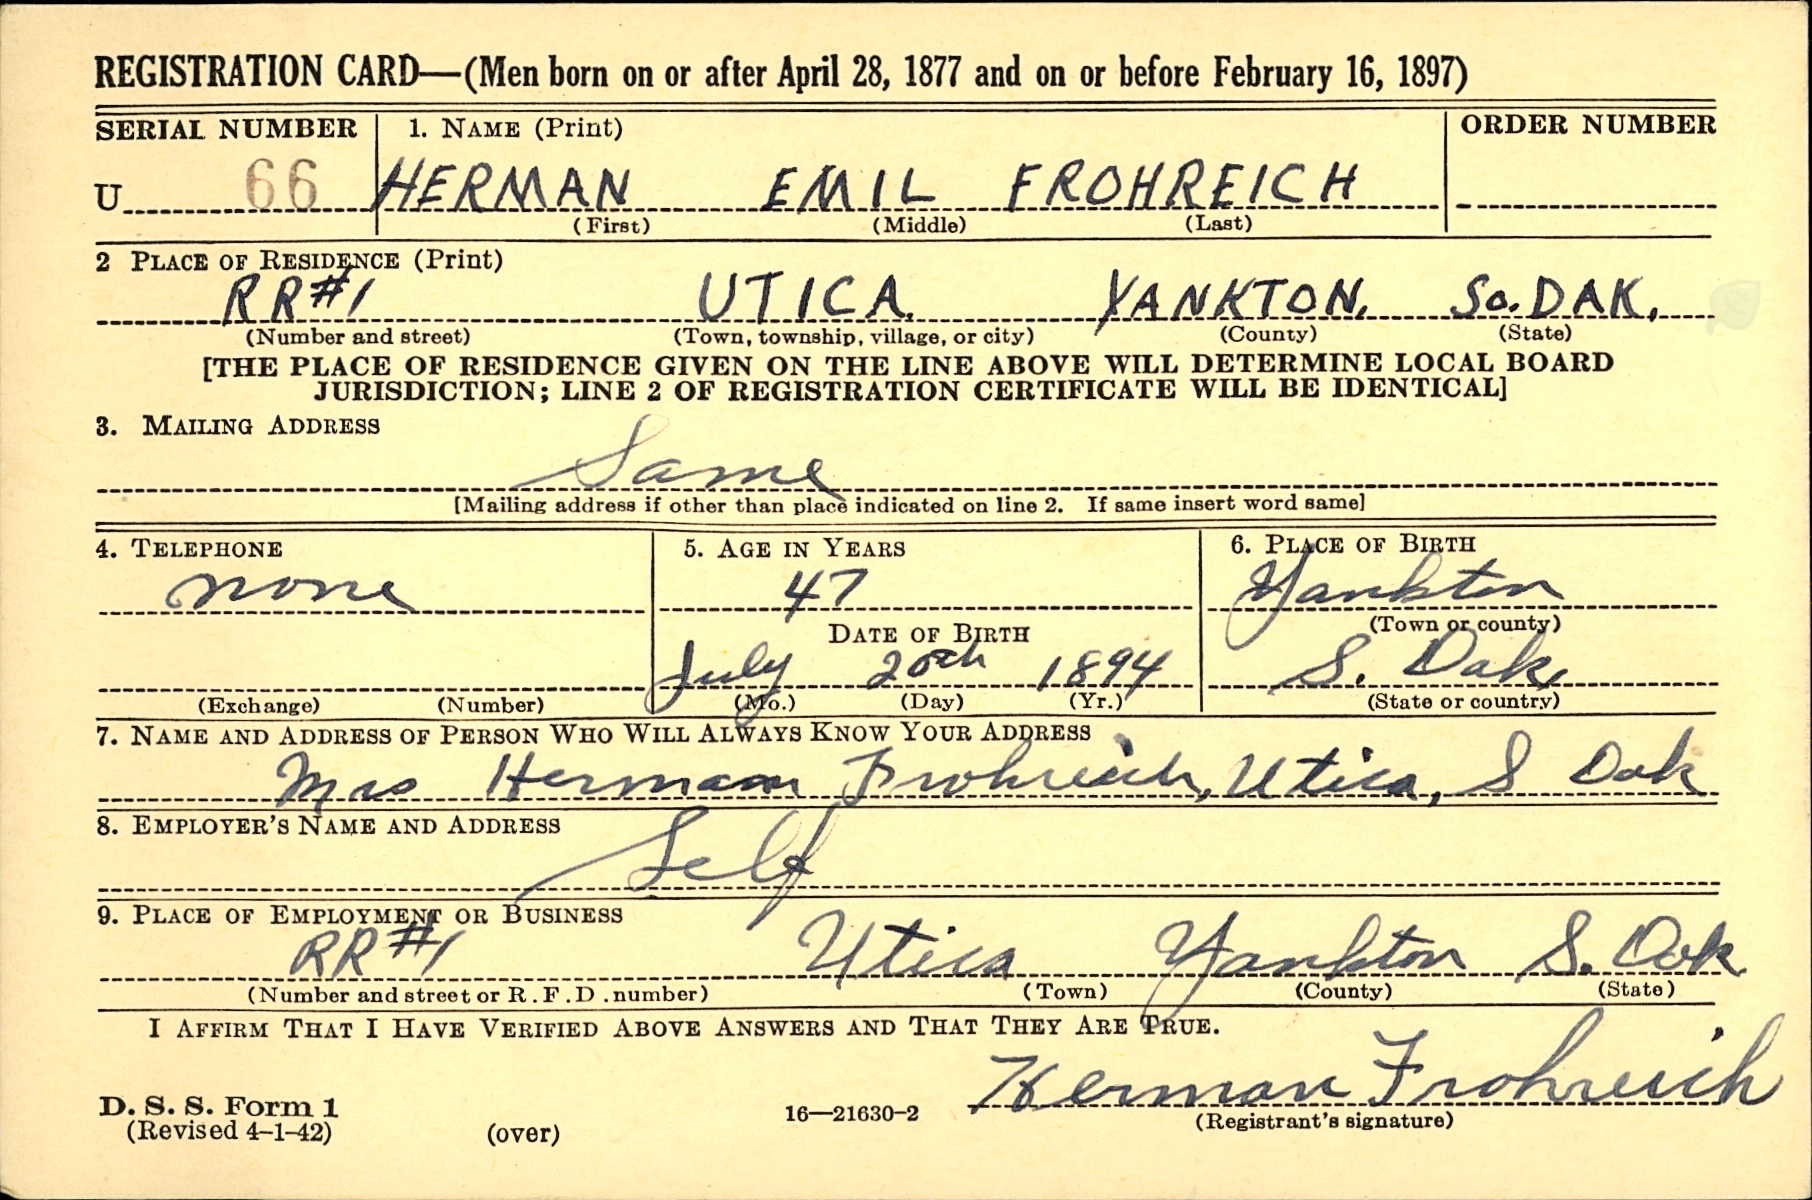 REGISTRATION CARD—(Men born on or after April 28, 1877 and on or before February 16, 1897)
SERIAL NUMBER 1. NAME (Print) ORDER NUMBER
U 66 HERMAN EMIL FROHREICH
(First) (Middle) (Last)
2 PLACE OF RESIDENCE (Print)
RR#1 UTICA. YANKTON. So. DAK.
(Number and street) (Town, township, village, or city) (County) (State)
[THE PLACE OF RESIDENCE GIVEN ON THE LINE ABOVE WILL DETERMINE LOCAL BOARD
JURISDICTION; LINE 2 OF REGISTRATION CERTIFICATE WILL BE IDENTICAL]
3. MAILING ADDRESS
Same
[Mailing address if other than place indicated on line 2. If same insert word same]
4. TELEPHONE 5. AGE IN YEARS 6. PLACE OF BIRTH
none 47 Yankton
DATE OF BIRTH (Town or county)
July 20th 1894 S. Dak
(Exchange) (Number) (Mo.) (Day) (Yr.) (State or country)
7. NAME AND ADDRESS OF PERSON WHO WILL ALWAYS KNOW YOUR ADDRESS
Mrs Herman Frohreich, Utica, S Dak
8. EMPLOYER'S NAME AND ADDRESS
Self
9. PLACE OF EMPLOYMENT OR BUSINESS
RR#1 Utica Yankton S. Dak
(Number and street or R.F.D. number) (Town) (County) (State)
I AFFIRM THAT I HAVE VERIFIED ABOVE ANSWERS AND THAT THEY ARE TRUE.
Herman Frohreich
D. S. S. Form 1
(Revised 4-1-42) (over) 16—21630-2 (Registrant's signature)